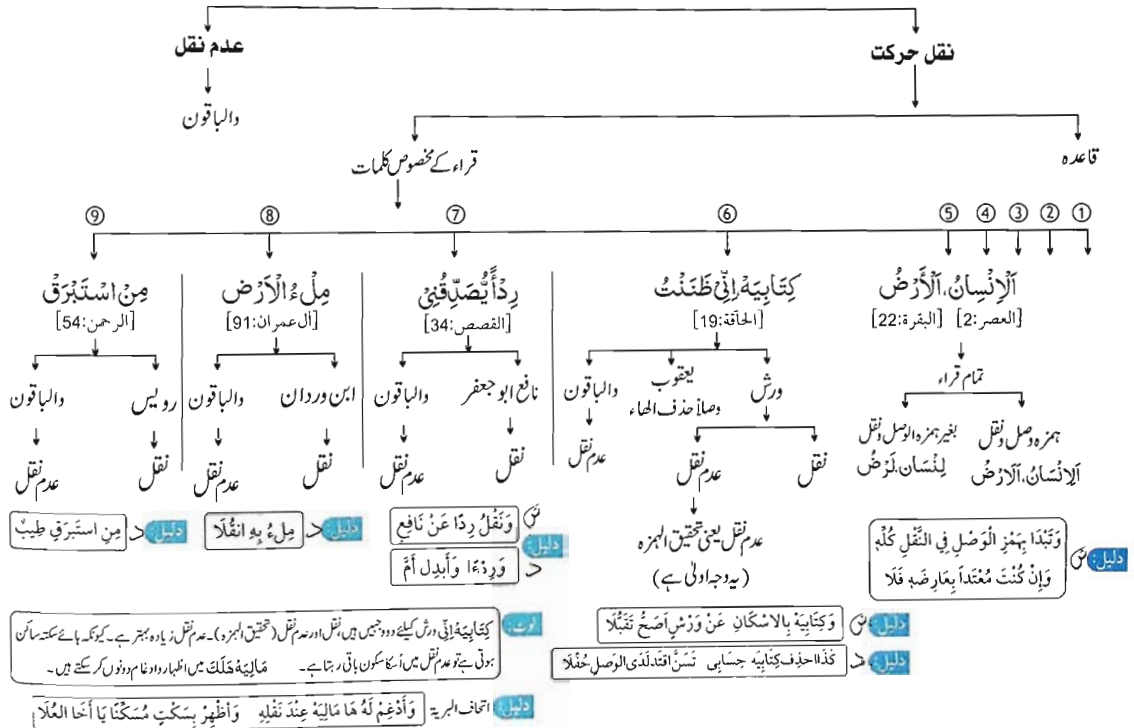 نقل حرکت
عدم نقل
والباقون
قاعدہ
قراء کے مخصوص کلمات
①
②
③
④
⑤
⑥
⑦
⑧
⑨
اَلْاِنْسَانُ، اَلْاَرْضُ
[العصر:2] [البقرة:22]
تمام قراء
ہمزہ وصل ونقل
اَلِانْسَانُ، اَلَارْضُ
بغیر ہمزہ الوصل ونقل
لِنْسَان، لَرْضُ
دلیل: ش
وَتَبْدَا بِهَمْزِ الْوَصْلِ فِي النَّقْلِ كُلِّهٖ
وَإِنْ كُنْتَ مُعْتَداً بِعَارِضِهٖ فَلَا
كِتَابِيَهْ، اِنِّيْ ظَنَنْتُ
[الحآقة:19]
ورش
یعقوب
وصلاً حذف الهاء
والباقون
عدم نقل
نقل
عدم نقل
عدم نقل یعنی تحقیق الہمزہ
(یہ وجہ اولیٰ ہے)
دلیل: ش وَكِتَابِيَهْ بِالْاسْكَانِ عَنْ وَرْشٍ اَصَحُّ تَقَبُّلَا
دلیل: د كَذَا احذِف كِتَابِيَه حِسَابِى تَسَنَّ اقتَدْ لَدَى الوَصلِ حُفِّلَا
رِدْاً يُّصَدِّقُنِيْ
[القصص:34]
نافع ابو جعفر
والباقون
نقل
عدم نقل
ش وَنَقْلُ رِدًا عَنْ نَافِعٍ
دلیل:
د وَرِدْءًا وَأَبدِل أُمَّ
مِلْءُ الْاَرْض
[اٰل عمران:91]
ابن وردان
والباقون
نقل
عدم نقل
دلیل: د مِلءُ بِهِ انقُلَا
مِنْ اسْتَبْرَقْ
[الرحمن:54]
رویس
والباقون
نقل
عدم نقل
دلیل: د مِنِ استَبرَقٍ طِيبٌ
نوٹ: كِتَابِيَهْ اِنِّيْ ورش کیلئے دو وجہیں ہیں، نقل اور عدم نقل (تحقیق الہمزہ)۔ عدم نقل زیادہ بہتر ہے۔ کیونکہ ہائے سکتہ ساکن
ہوتی ہے تو عدم نقل میں اُسکا سکون باقی رہتا ہے۔ مَالِيَهْ هَلَكَ میں اظہار و ادغام دونوں کر سکتے ہیں۔
دلیل: اتحاف البریة وَأَدْغِمْ لَهُ هَا مَالِيَهْ عِنْدَ نَقْلِهِ وَأَظْهِرْ بِسَكْتٍ مُسْكَنًا يَا أَخَا الْعُلَا